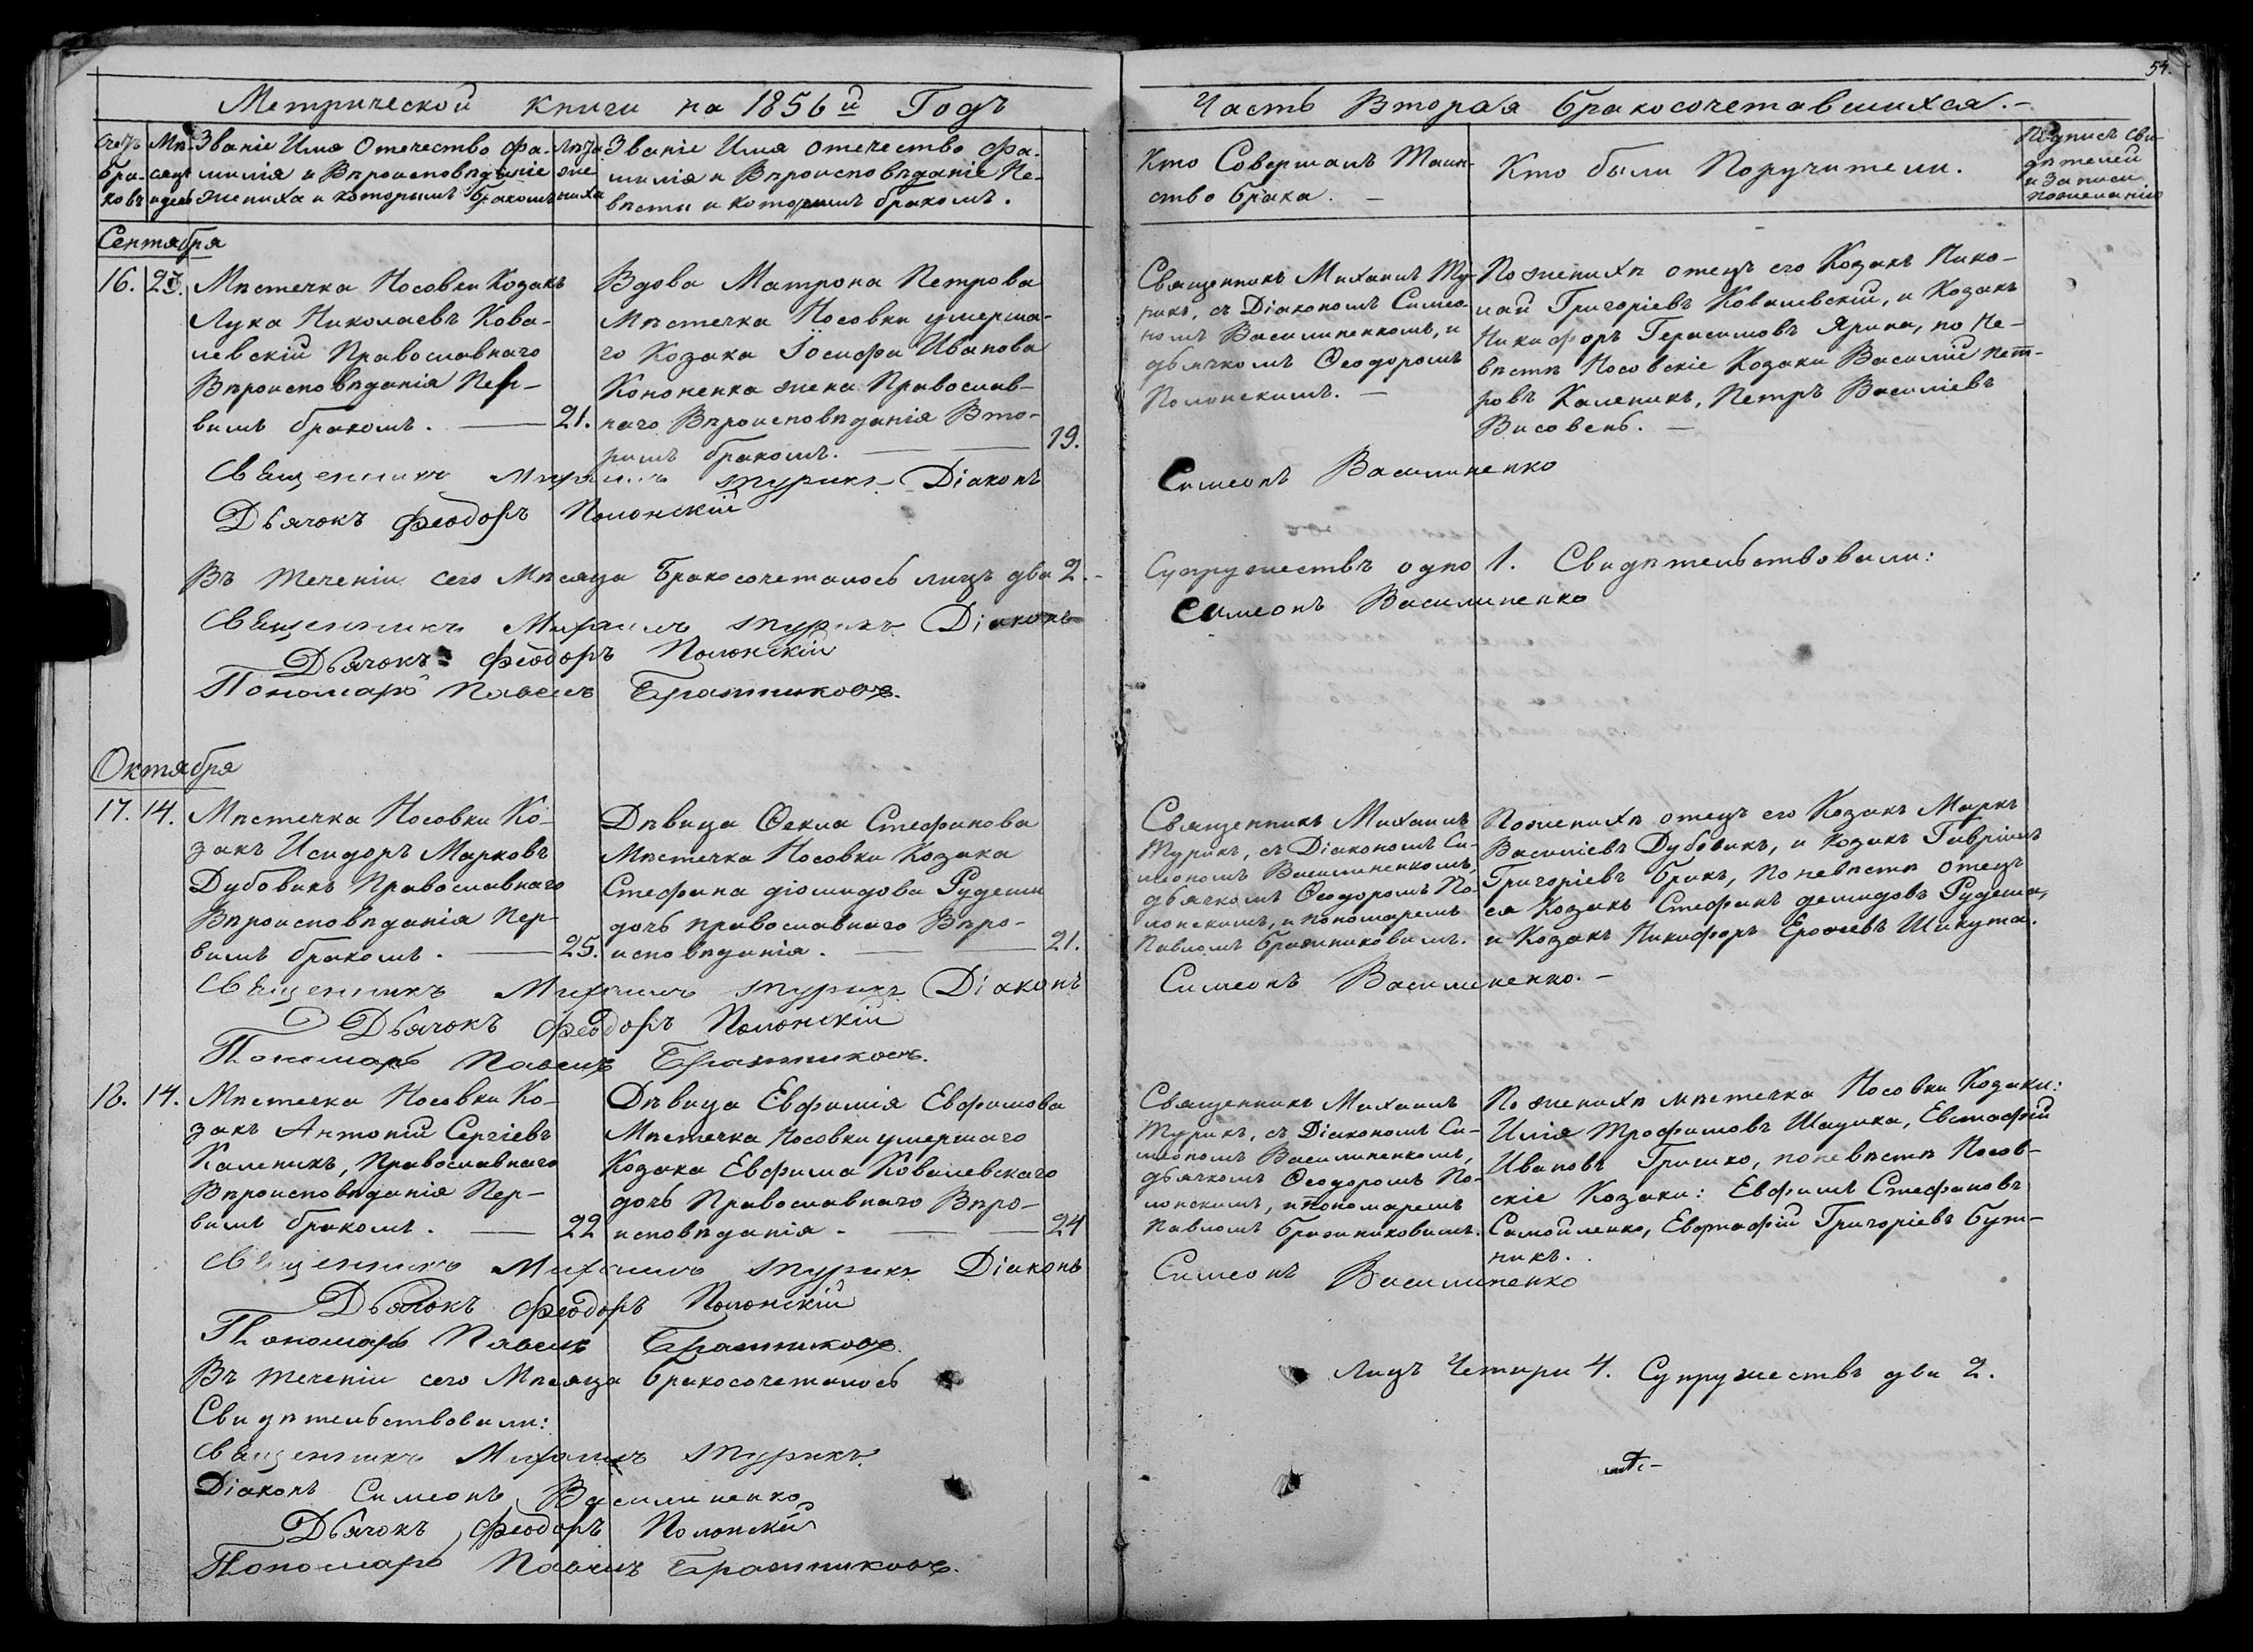 54.
Метрической книги на 1856й Годъ
Часть Вторая бракосочетавшихся.-
Счетъ бра-ковъ
Мѣ-сяцъ и день
Званіе Имя Отечество Фа-
милія и Вѣроисповѣданіе
жениха и которымъ бракомъ
Лѣта жениха
Званіе Имя отечество Фа-
милія и Вѣроисповѣданіе Не-
вѣсты и которымъ бракомъ.
Кто Совершалъ Таин-
ство брака. -
Кто были Поручители.
Подпись сви-
дѣтелей
и Записи
пожеланію
Сентября
16. 23.
Мѣстечка Носовки Козакъ
Лука Николаевъ Кова-
левскій Православнаго
Вѣроисповѣданія Пер-
вымъ бракомъ. — 21.
Вдова Матрона Петрова
Мѣстечка Носовки умерша-
го Козака Іосифа Иванова
Кононенка жена Православ-
наго Вѣроисповѣданія Вто-
рымъ бракомъ. — 19.
Священникъ Михаилъ Ту-
рикъ, съ Діакономъ Симео-
номъ Василиненкомъ, и
дьячкомъ Ѳеодоромъ
Полонскимъ. —
По женихѣ отецъ его Козакъ Нико-
лай Григоріевъ Ковалевскій, и Козакъ
Никифоръ Герасимовъ Ярина, по Не-
вѣстѣ Носовскіе Козаки Василій Пет-
ровъ Каленикъ, Петръ Василіевъ
Висовень. —
Священникъ Михаилъ Турикъ Діаконъ
Симеонъ Василиненко
Дьячокъ Феодоръ Полонскій
Въ теченіи сего Мѣсяца Бракосочеталось лицъ два 2.-
Супружествъ одно 1. Свидѣтельствовали:
Священникъ Михаилъ Турикъ Діаконъ
Симеонъ Василиненко
Дьячокъ Феодоръ Полонскій
Пономарь Павелъ Братниковъ.
Октября
17. 14.
Мѣстечка Носовки Ко-
закъ Исидоръ Марковъ
Дубовикъ Православнаго
Вѣроисповѣданія Пер-
вымъ бракомъ. — 25.
Дѣвица Ѳекла Стефанова
Мѣстечка Носовки Козака
Стефана діомидова Рудеши
дочь православнаго Вѣро-
исповѣданія. — 21.
Священникъ Михаилъ
Турикъ, съ Діакономъ Си-
меономъ Василиненкомъ,
дьячкомъ Ѳеодоромъ По-
лонскимъ, и пономаремъ
Павломъ Братниковымъ.
По женихѣ отецъ его Козакъ Маркъ
Василіевъ Дубовикъ, и Козакъ Гавріилъ
Григоріевъ Брикъ, По невѣстѣ отецъ
ея Козакъ Стефанъ демидовъ Рудеша,
и Козакъ Никифоръ Ероѳеевъ Шикута.
Священникъ Михаилъ Турикъ Діаконъ
Симеонъ Василиненко. -
Дьячокъ Феодоръ Полонскій
Пономарь Павелъ Братниковъ.
18. 14.
Мѣстечка Носовки Ко-
закъ Антоній Сергіевъ
Каленикъ, Православнаго
Вѣроисповѣданія Пер-
вымъ бракомъ. — 22
Дѣвица Евфимія Евфимова
Мѣстечка Носовки умершаго
Козака Евфима Ковалевскаго
дочь Православнаго Вѣро-
исповѣданія. — 24
Священникъ Михаилъ
Турикъ, съ Діакономъ Си-
меономъ Василиненкомъ,
дьячкомъ Ѳеодоромъ По-
лонскимъ, и пономаремъ
Павломъ Братниковымъ.
По женихѣ мѣстечка Носовки Козаки:
Илія Трофимовъ Шадика, Евстафій
Ивановъ Гришко, по невѣстѣ Носов-
скіе Козаки: Евфимъ Стефановъ
Самойленко, Евстафій Григоріевъ Бут-
никъ.
Священникъ Михаилъ Турикъ Діаконъ
Симеонъ Василиненко
Дьячокъ Феодоръ Полонскій
Пономарь Павелъ Братниковъ.
Въ теченіи сего Мѣсяца бракосочеталось
Лицъ Четыри 4. Супружествъ два 2.
Свидѣтельствовали:
Священникъ Михаилъ Турикъ
Діаконъ Симеонъ Василиненко
Дьячокъ Феодоръ Полонскій
Пономарь Павелъ Братниковъ.